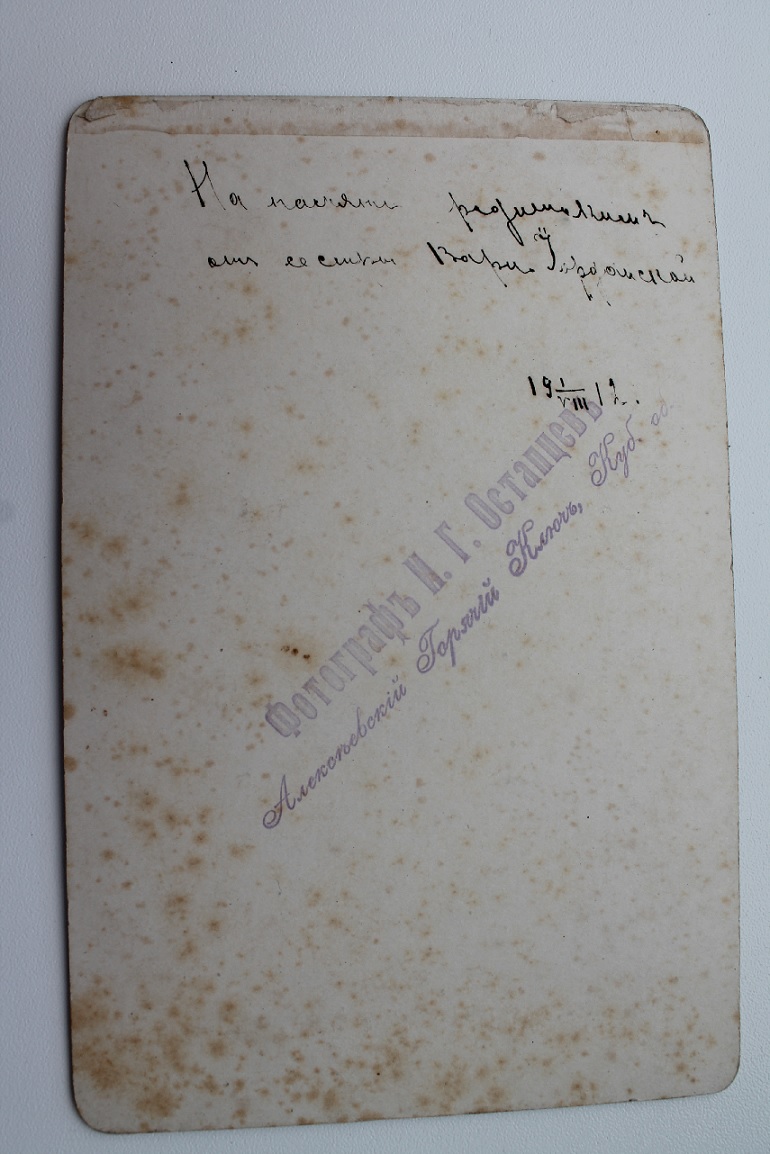 На память
отъ сестры Вари
19 I/VIII 12.
Фотографъ И. Г. Остапцевъ
Алексѣевскій Горячій Ключъ, Куб. об.